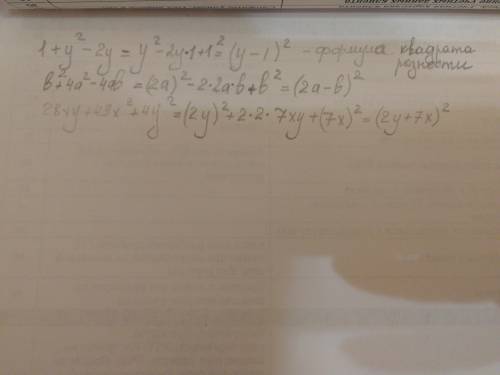 1+y²-2y = y²-2y·1+1² = (y-1)² - формула квадрата разности
b²+4a²-4ab = (2a)²-2·2a·b+b² = (2a-b)²
28xy+49x²+4y² = (2y)²+2·2·7xy+(7x)² = (2y+7x)²